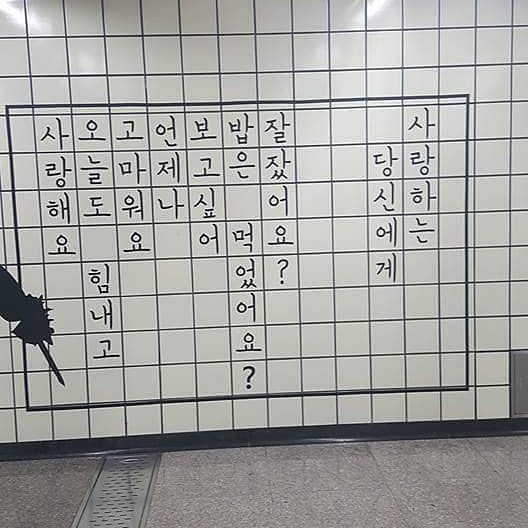 사랑하는
당신에게
잘 잤어요?
밥은 먹었어요?
보고 싶어
언제나
고마워요
오늘도 힘내고
사랑해요